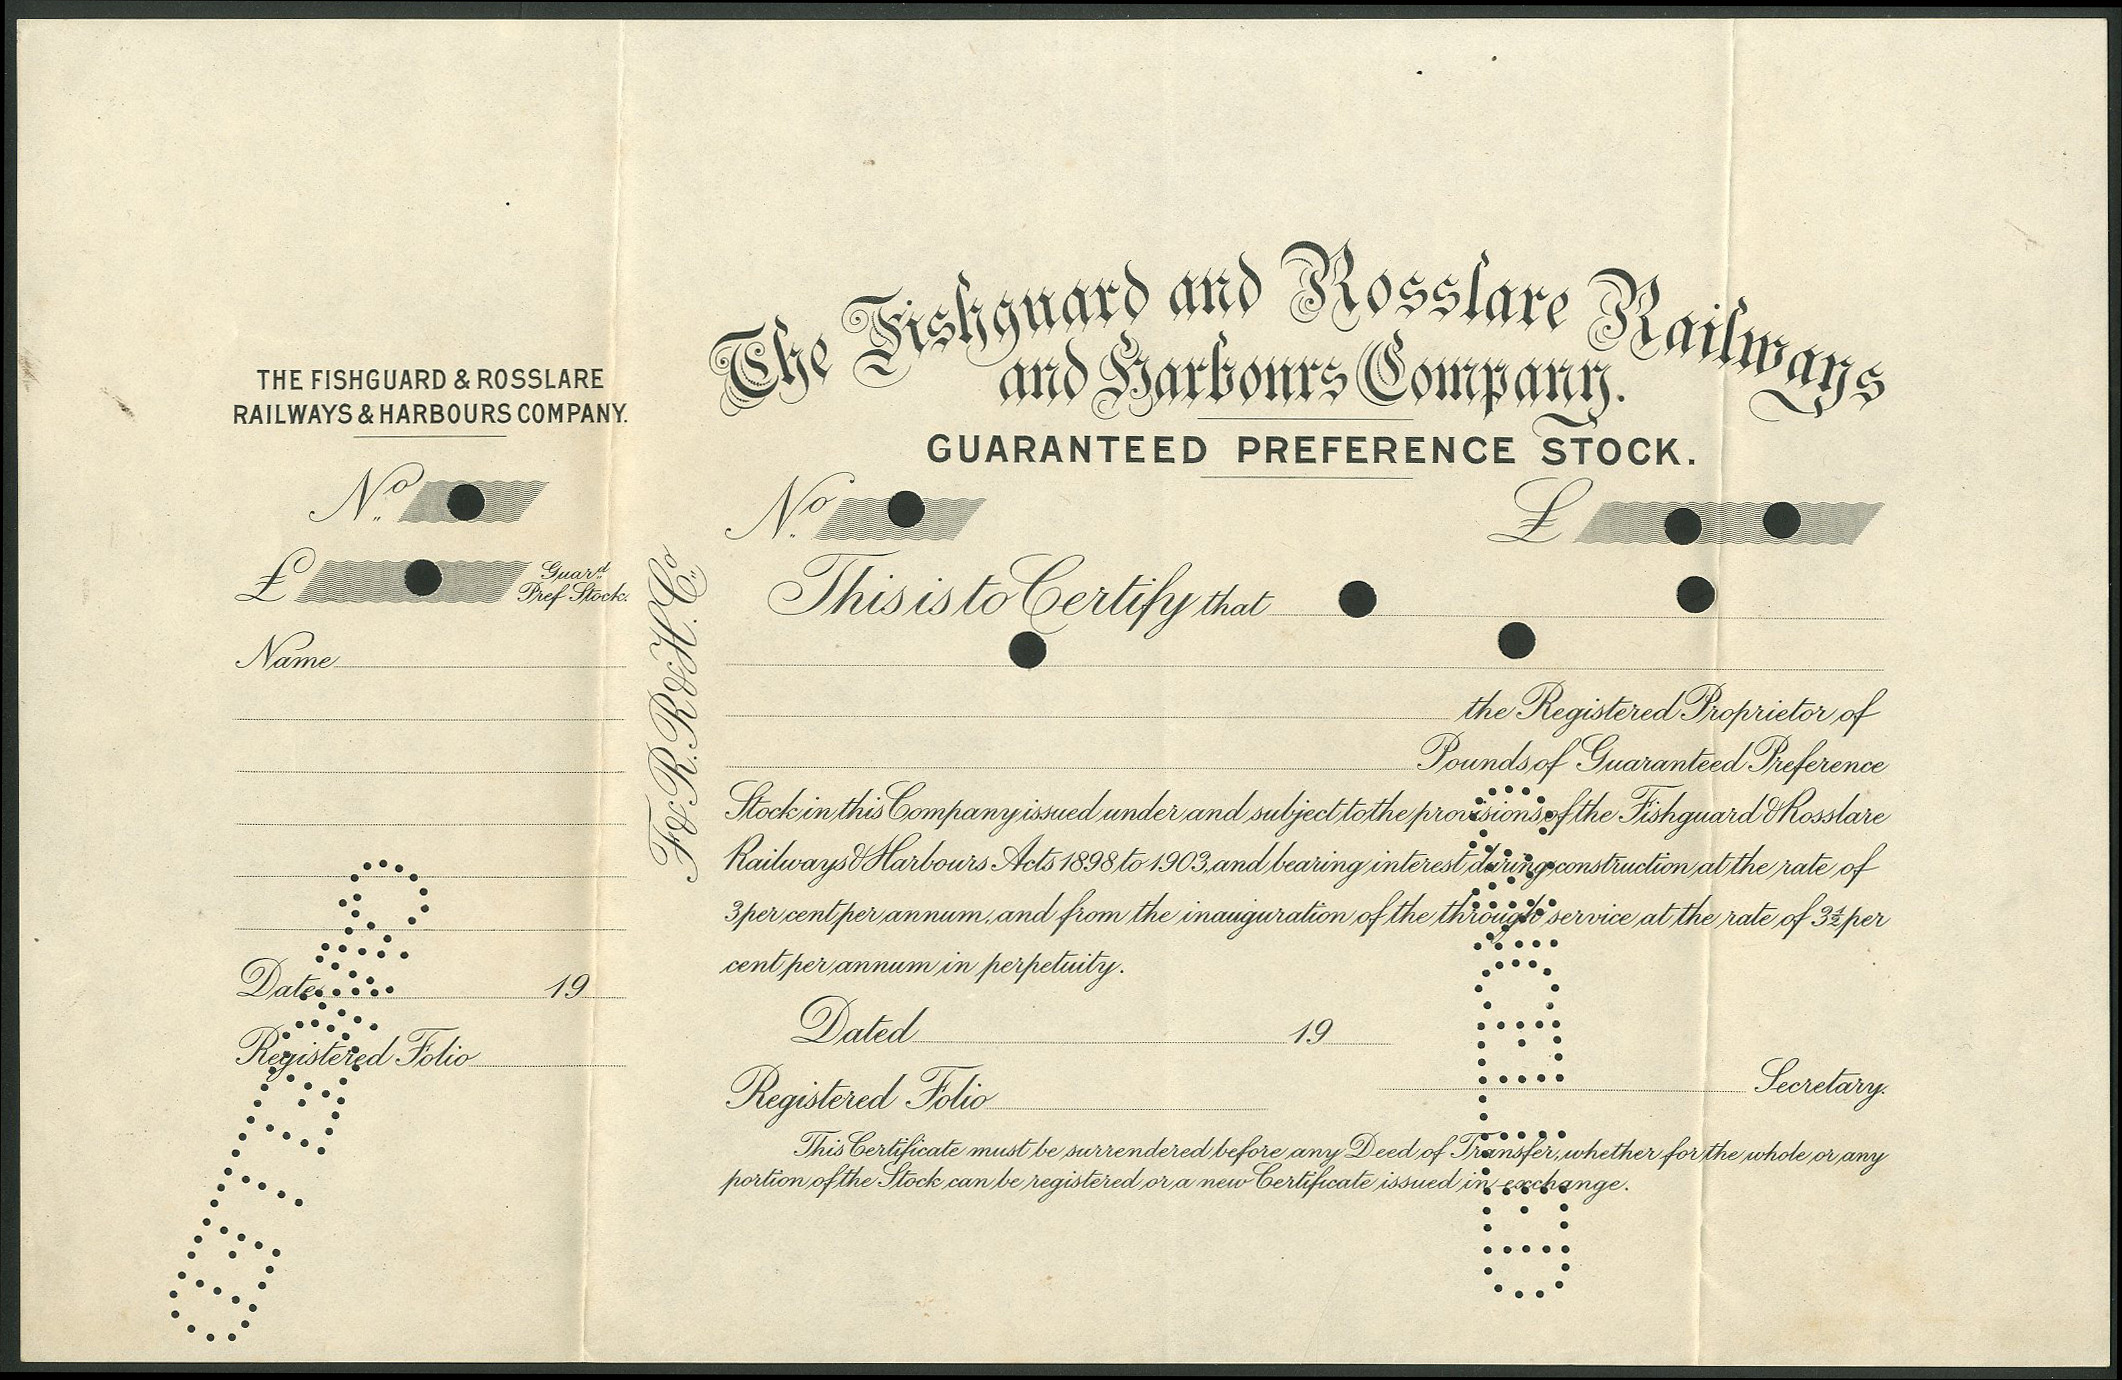 THE FISHGUARD & ROSSLARE
RAILWAYS & HARBOURS COMPANY.
No.
£ Guard. Pref Stock.
Name
Date 19
Registered Folio
F. & R. R. & H. Co.
The Fishguard and Rosslare Railways
and Harbours Company.
GUARANTEED PREFERENCE STOCK.
No. £
This is to Certify that
the Registered Proprietor of
Pounds, of Guaranteed Preference
Stock in this Company issued under and subject to the provisions of the Fishguard & Rosslare
Railways & Harbours Acts 1898 to 1903, and bearing interest during construction at the rate of
3 per cent per annum, and from the inauguration of the through service at the rate of 3½ per
cent per annum in perpetuity.
Dated 19
Registered Folio
Secretary.
This Certificate must be surrendered before any Deed of Transfer, whether for the whole or any
portion of the Stock can be registered or a new Certificate issued in exchange.